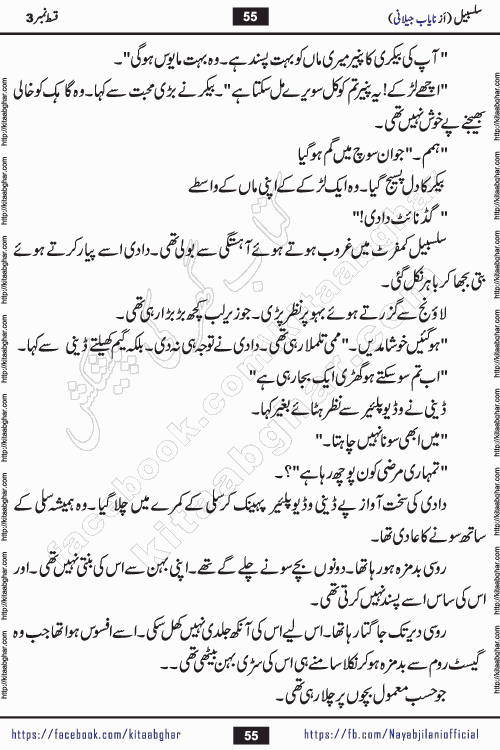 سلسبیل (از نایاب جیلانی) 55 قسط نمبر 3
"آپ کی بیکری کا پنیر میری ماں کو بہت پسند ہے۔ وہ بہت مایوس ہو گی"۔
"اچھے لڑکے! یہ پنیر تم کو کل سویرے مل سکتا ہے"۔ بیکر نے بڑی محبت سے کہا۔ وہ گاہک کو خالی
بھیجنے پے خوش نہیں تھی۔
"ہمم۔" جوان سوچ میں گم ہو گیا
بیکر کا دل پسیج گیا۔ وہ ایک لڑکے کے اپنی ماں کے واسطے
"گڈ نائٹ دادی!"
سلسبیل کمفرٹ میں غروب ہوتے ہوئے آہستگی سے بولی تھی۔ دادی اسے پیار کرتے ہوئے
بتی بجھا کر باہر نکل گئی۔
لاؤنج سے گزرتے ہوئے بہو پر نظر پڑی۔ جو زیر لب کچھ بڑبڑا رہی تھی۔
"ہو گئیں خوشامدیں۔" ممی تلملا رہی تھی۔ دادی نے توجہ ہی نہ دی۔ بلکہ گیم کھیلتے ڈینی سے کہا۔
"اب تم سو سکتے ہو گھڑی ایک بجا رہی ہے"
ڈینی نے وڈیو پلئیر سے نظر ہٹائے بغیر کہا۔
"میں ابھی سونا نہیں چاہتا۔"
"تمہاری مرضی کون پوچھ رہا ہے"؟۔
دادی کی سخت آواز پے ڈینی وڈیو پلئیر پھینک کر سلی کے کمرے میں چلا گیا۔ وہ ہمیشہ سلی کے
ساتھ سونے کا عادی تھا۔
روسی بدمزہ ہو رہا تھا۔ دونوں بچے سونے چلے گے تھے۔ اپنی بہن سے اس کی بنتی نہیں تھی۔ اور
اس کی ساس اسے پسند نہیں کرتی تھی۔
روسی دیر تک جاگتا رہا تھا۔ اس لیے اس کی آنکھ جلدی نہیں کھل سکی۔ اسے افسوس ہوا تھا جب وہ
گیسٹ روم سے بدمزہ ہو کر نکلا سامنے ہی اس کی سڑی بہن بیٹھی تھی۔۔
جو حسب معمول بچوں پر چلا رہی تھی۔
کتاب گھر کی پیشکش
facebook.com/kitaabghar
kitaabghar.com
http://kitaabghar.com
https://facebook.com/kitaabghar 55 https://fb.com/Nayabjilaniofficial